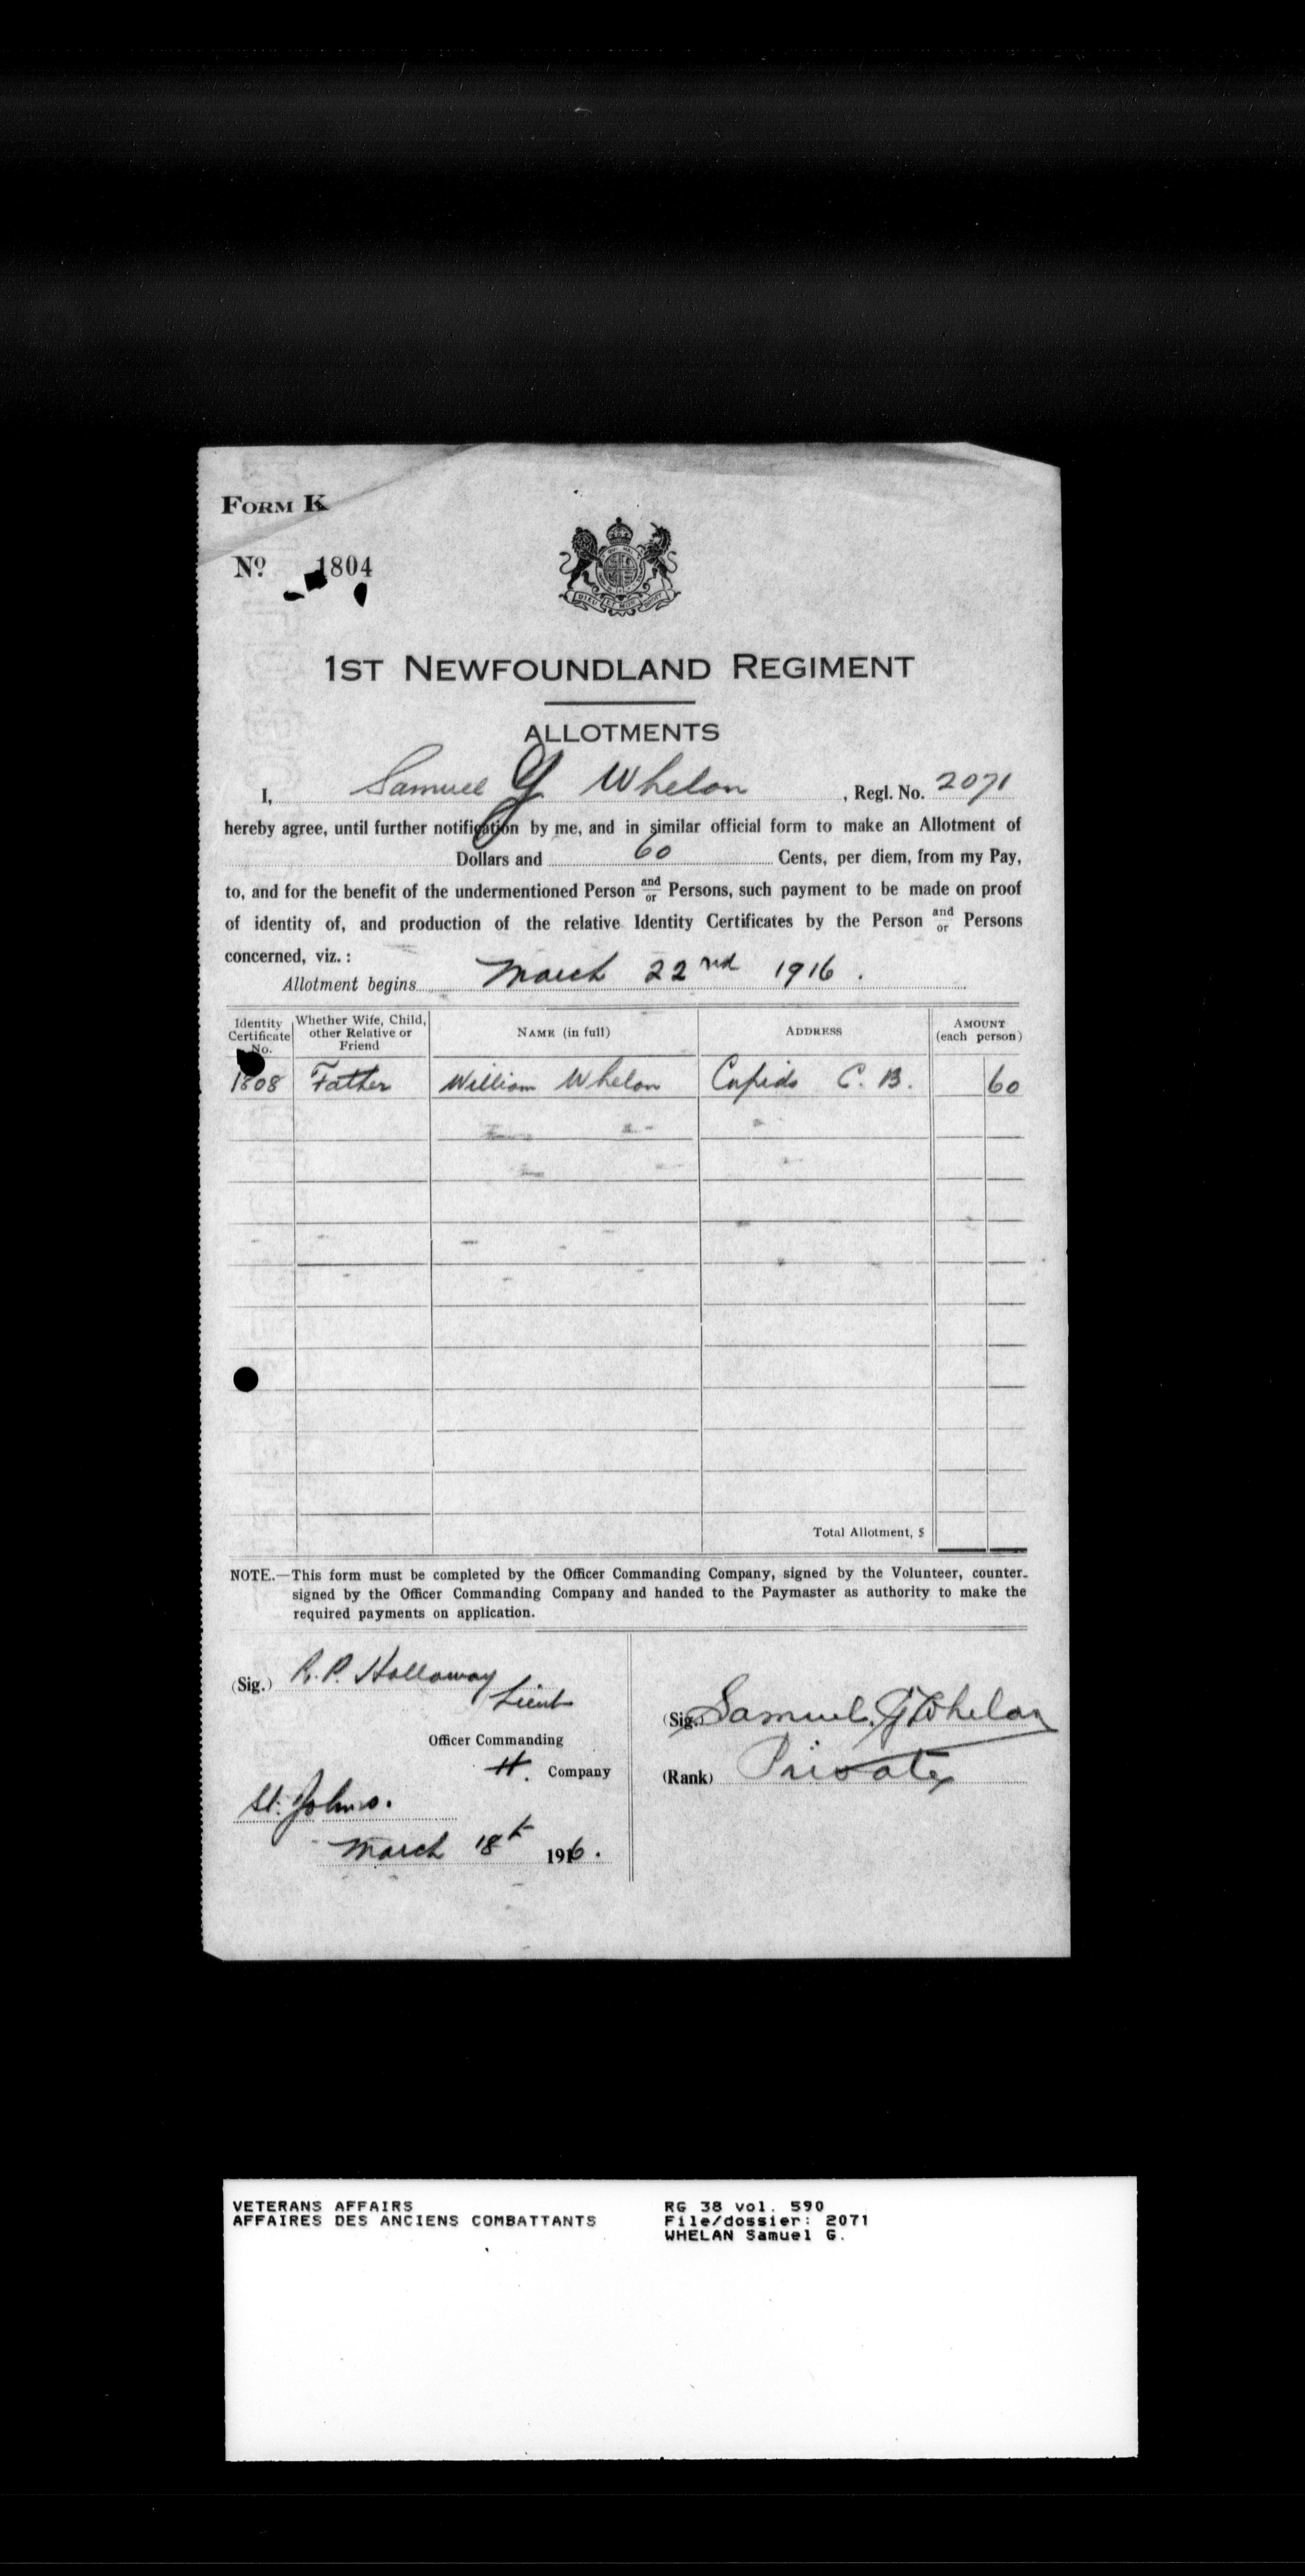 FORM K
No. 1804
DIEU ET MON DROIT
1ST NEWFOUNDLAND REGIMENT
ALLOTMENTS
I, Samuel G Whelan, Regl. No. 2071
hereby agree, until further notification by me, and in similar official form to make an Allotment of
Dollars and 60 Cents, per diem, from my Pay,
to, and for the benefit of the undermentioned Person and/or Persons, such payment to be made on proof
of identity of, and production of the relative Identity Certificates by the Person and/or Persons
concerned, viz.:
Allotment begins March 22nd 1916.
Identity Certificate No. | Whether Wife, Child, other Relative or Friend | NAME (in full) | ADDRESS | AMOUNT (each person)
1808 | Father | William Whelan | Cupids C. B. | 60
Total Allotment, $
NOTE.—This form must be completed by the Officer Commanding Company, signed by the Volunteer, counter-
signed by the Officer Commanding Company and handed to the Paymaster as authority to make the
required payments on application.
(Sig.) R. P. Holloway
Lieut
Officer Commanding
H. Company
St. Johns.
March 18th 1916.
(Sig.) Samuel. G Whelan
(Rank) Private
VETERANS AFFAIRS
AFFAIRES DES ANCIENS COMBATTANTS
RG 38 vol. 590
File/dossier: 2071
WHELAN Samuel G.